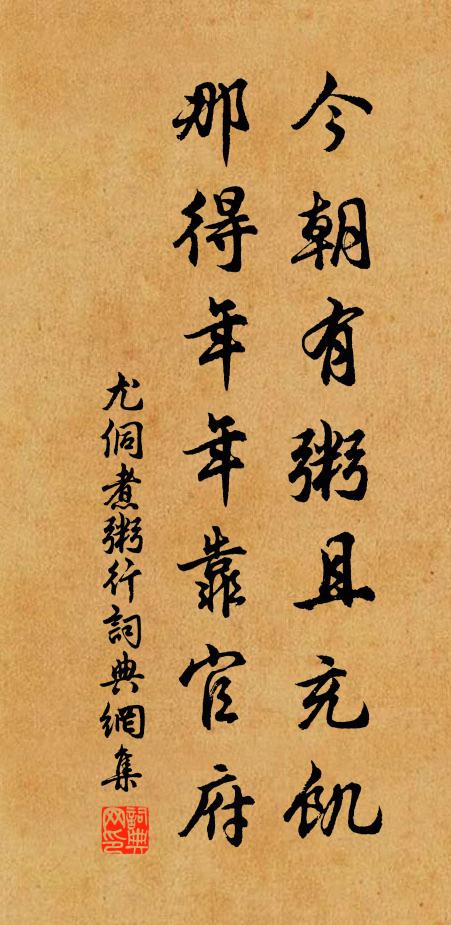 今朝有粥且充飢
那得年年靠官府
尤侗煮粥行詞典網集
詞典網印